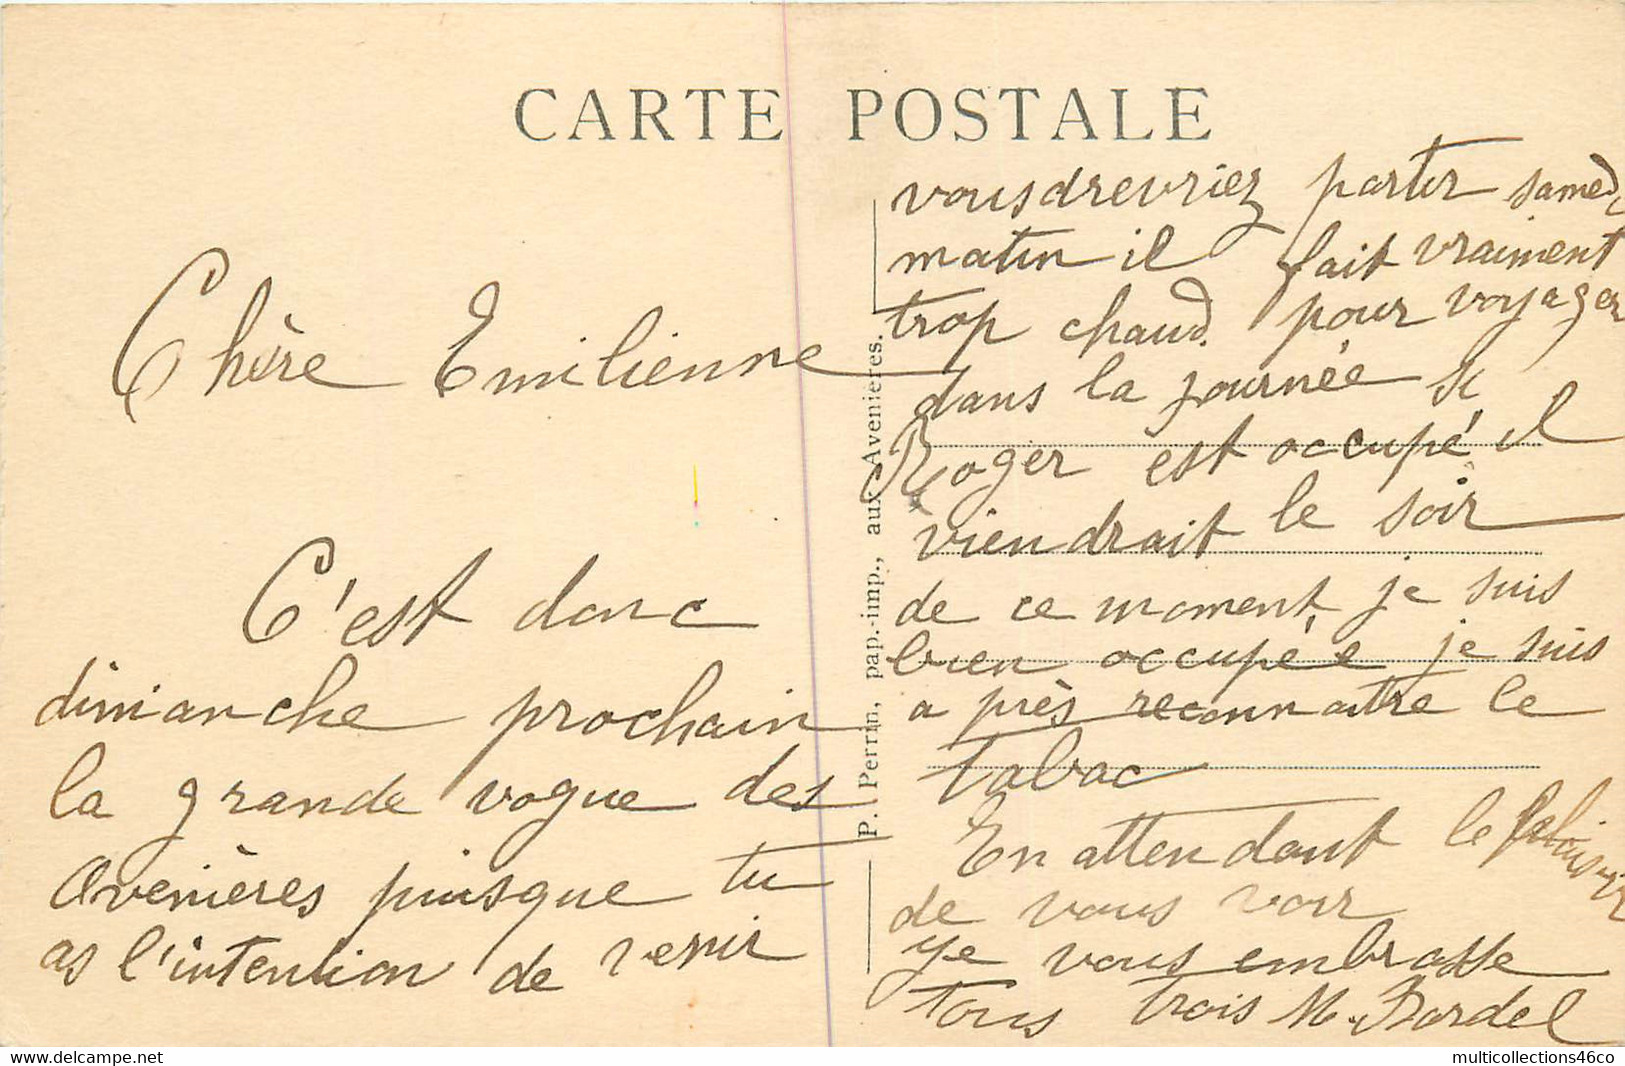 CARTE POSTALE
Chère Emilienne
C'est donc
dimanche prochain
la grande vogue des
Avenières puisque tu
as l'intention de venir
P. Perrin, pap.-imp., aux Avenières.
vous drevriez partir samedi
matin il fait vraiment
trop chaud. pour voyager
dans la journée si
Roger est occupé il
viendrait le soir
de ce moment je suis
bien occupée je suis
a près reconnaitre le
tabac
En attendant le plaisir
de vous voir
je vous embrasse
tous trois M. Bordel
multicollections46co